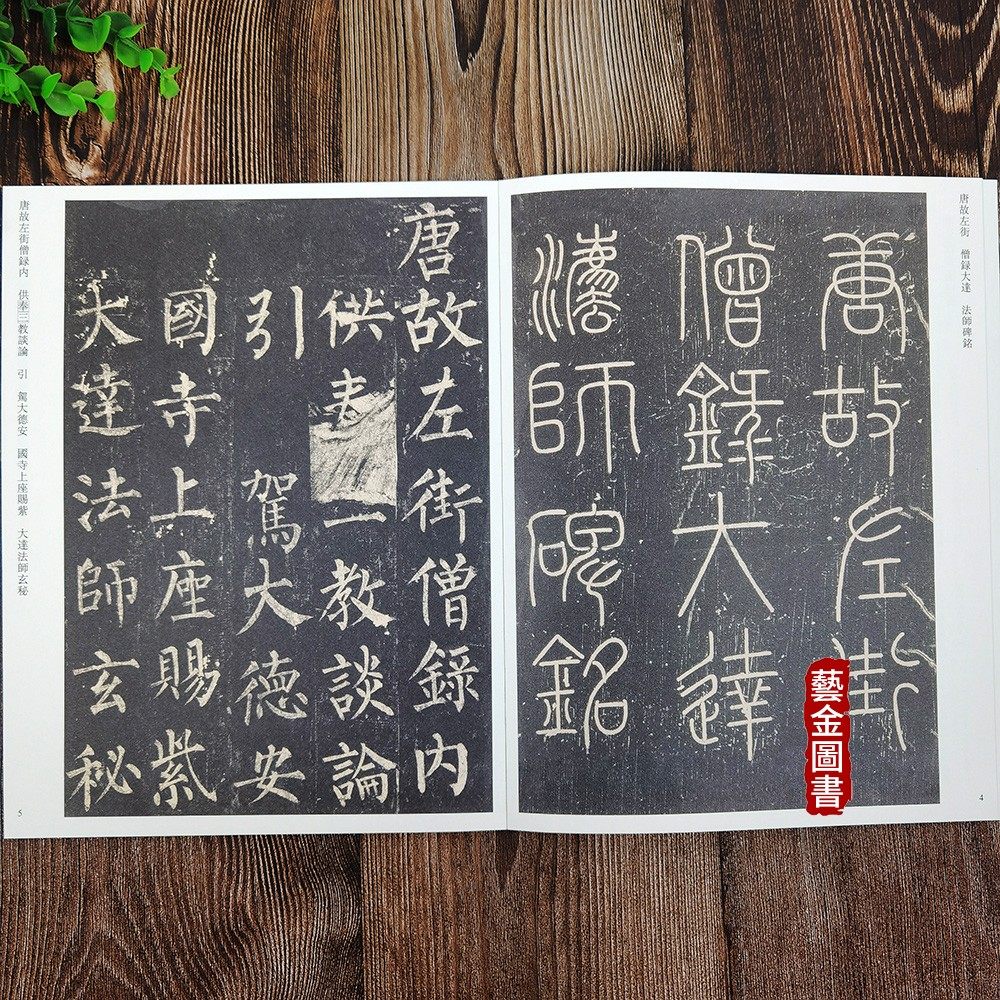 唐故左街　僧録大達　法師碑銘
唐故左街
僧録大達
灋師碑銘
藝金圖書
4
唐故左街僧録内
供教談論
引　駕大德安
國寺上座賜紫
大達法師玄秘
唐故左街僧録内　供奉三教談論　引　駕大德安　國寺上座賜紫　大達法師玄秘
5